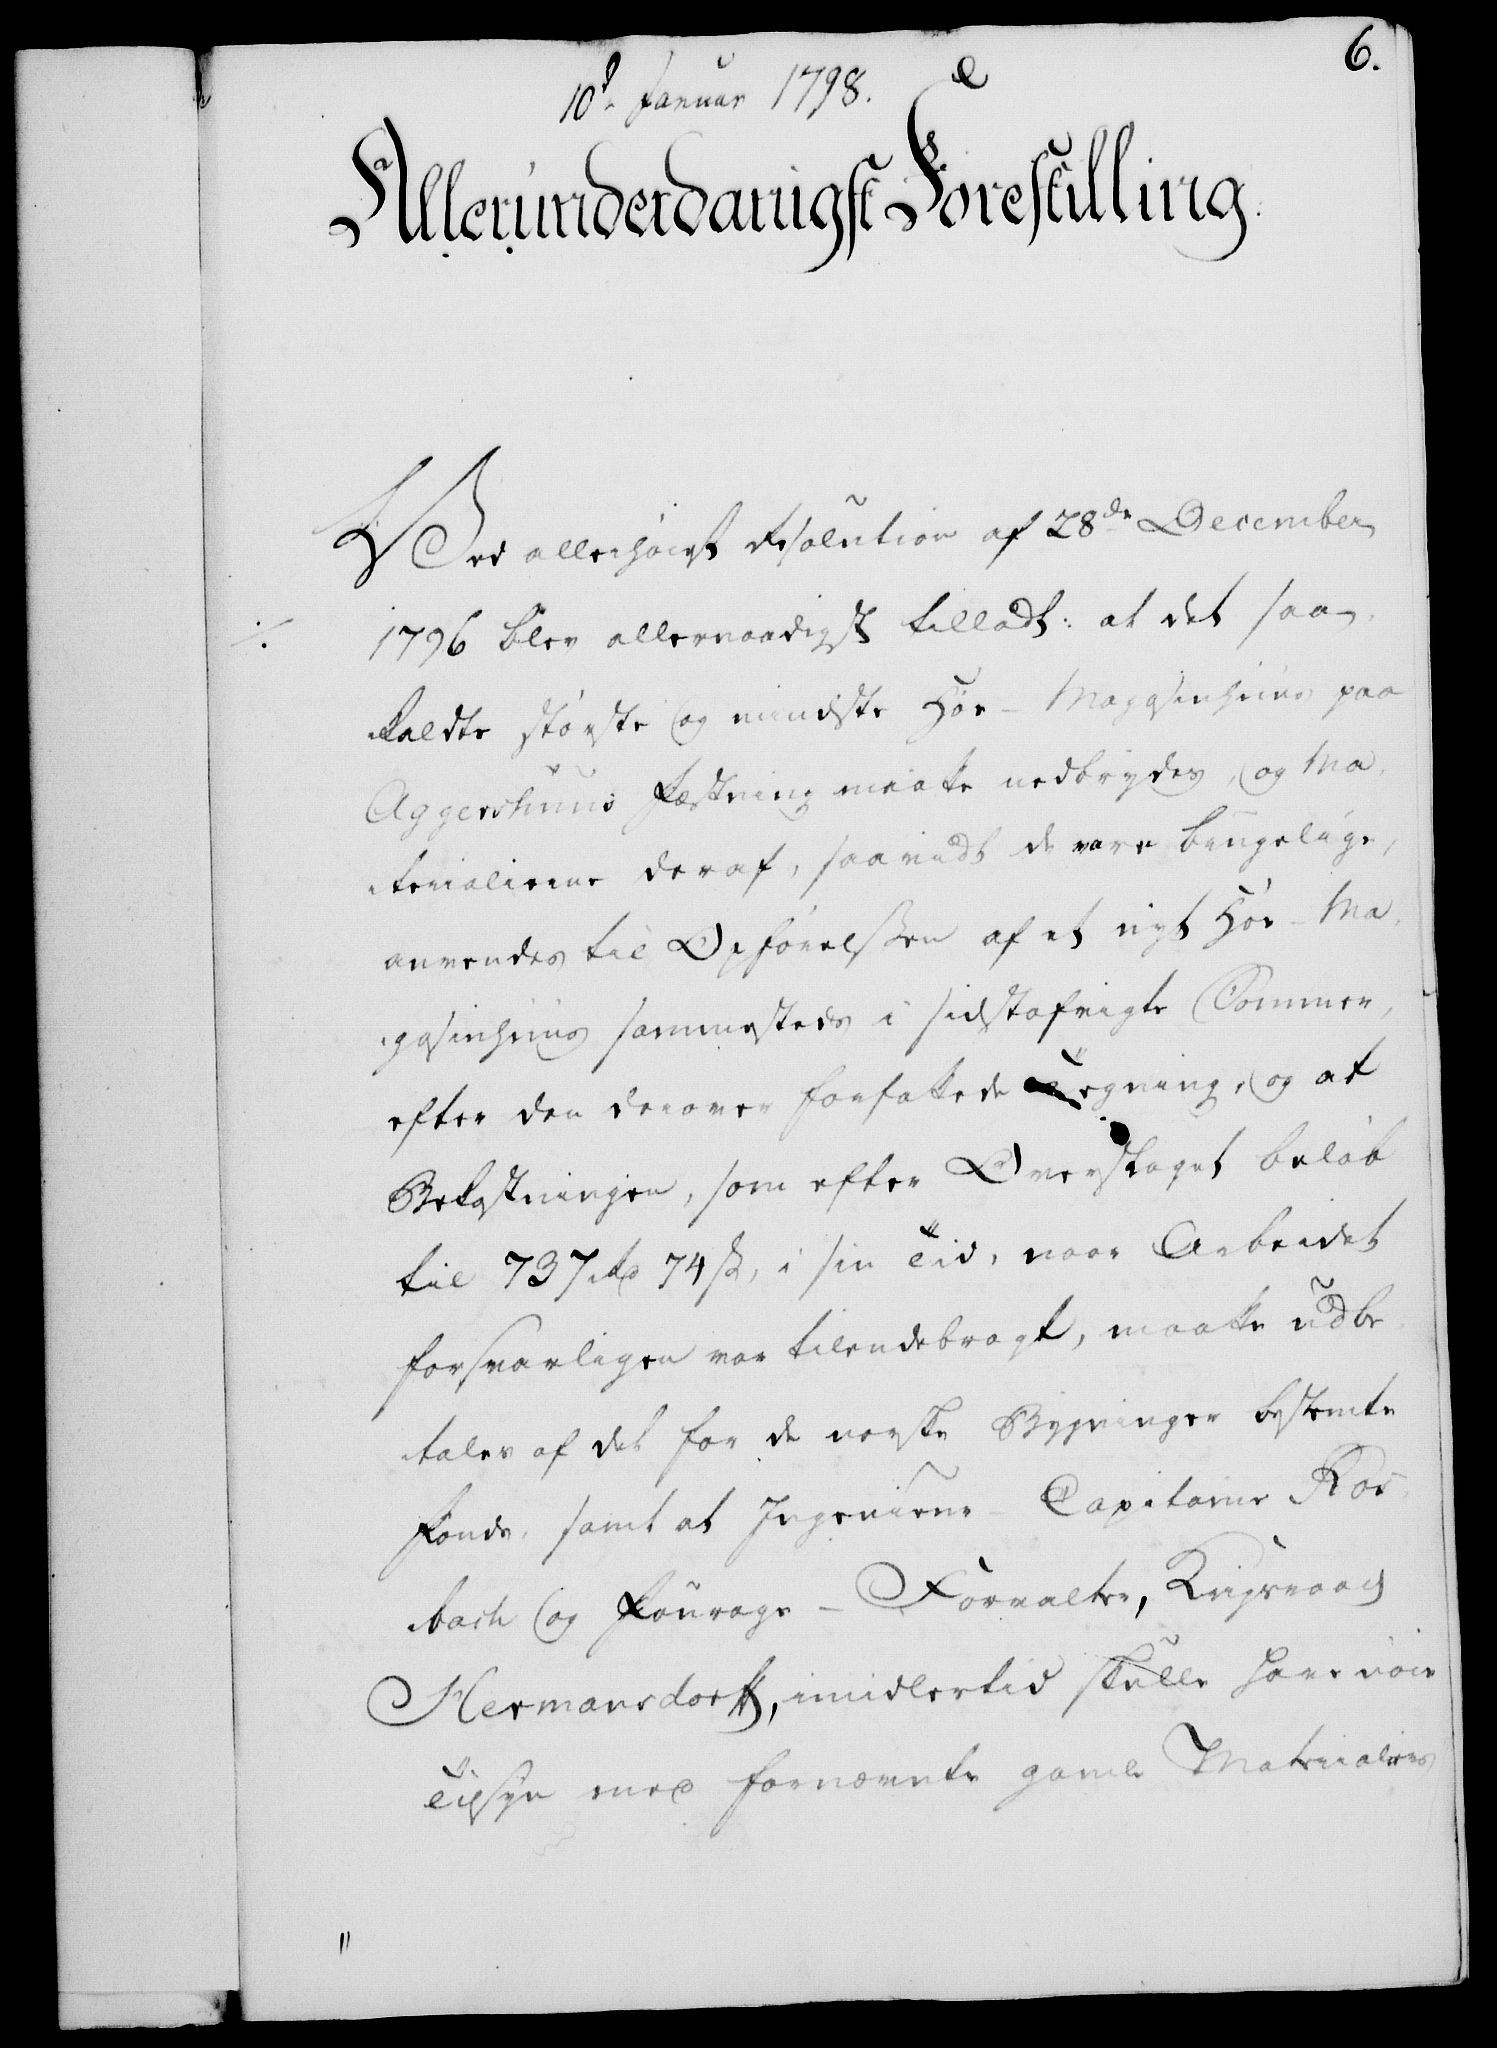 6.
10d Januar 1798.
Allerunderdanigst Forestilling.
Ved allerhöiest Resolution af 28de December
1796 blev allernaadigst tilladt: at det saa-
kaldte störste og mindste Höe-Magasinhuus paa
Aggershuus Fæstning maatte nedbrydes, og Ma-
terialierne deraf, saavidt de vare brugelige,
anvendes til Opförelsen af et nyt Höe-Ma-
gasinhuus sammesteds i sidstafvigte Sommer,
efter den derover forfattede Tegning, og at
Bekostningen, som efter Overslaget belöb
til 737 rd 74 s, i sin Tid, naar Arbeidet
forsvarligen var tilendebragt, maatte udbe-
tales af det for de norske Bygninger bestemte
Fond, samt at Ingenieur-Capitaine Ros-
bach og Fourage-Forvalter, Krigsraad
Hermansdorff, imidlertid skulle have nöie
Tilsyn med fornævnte gamle Materialiers
"